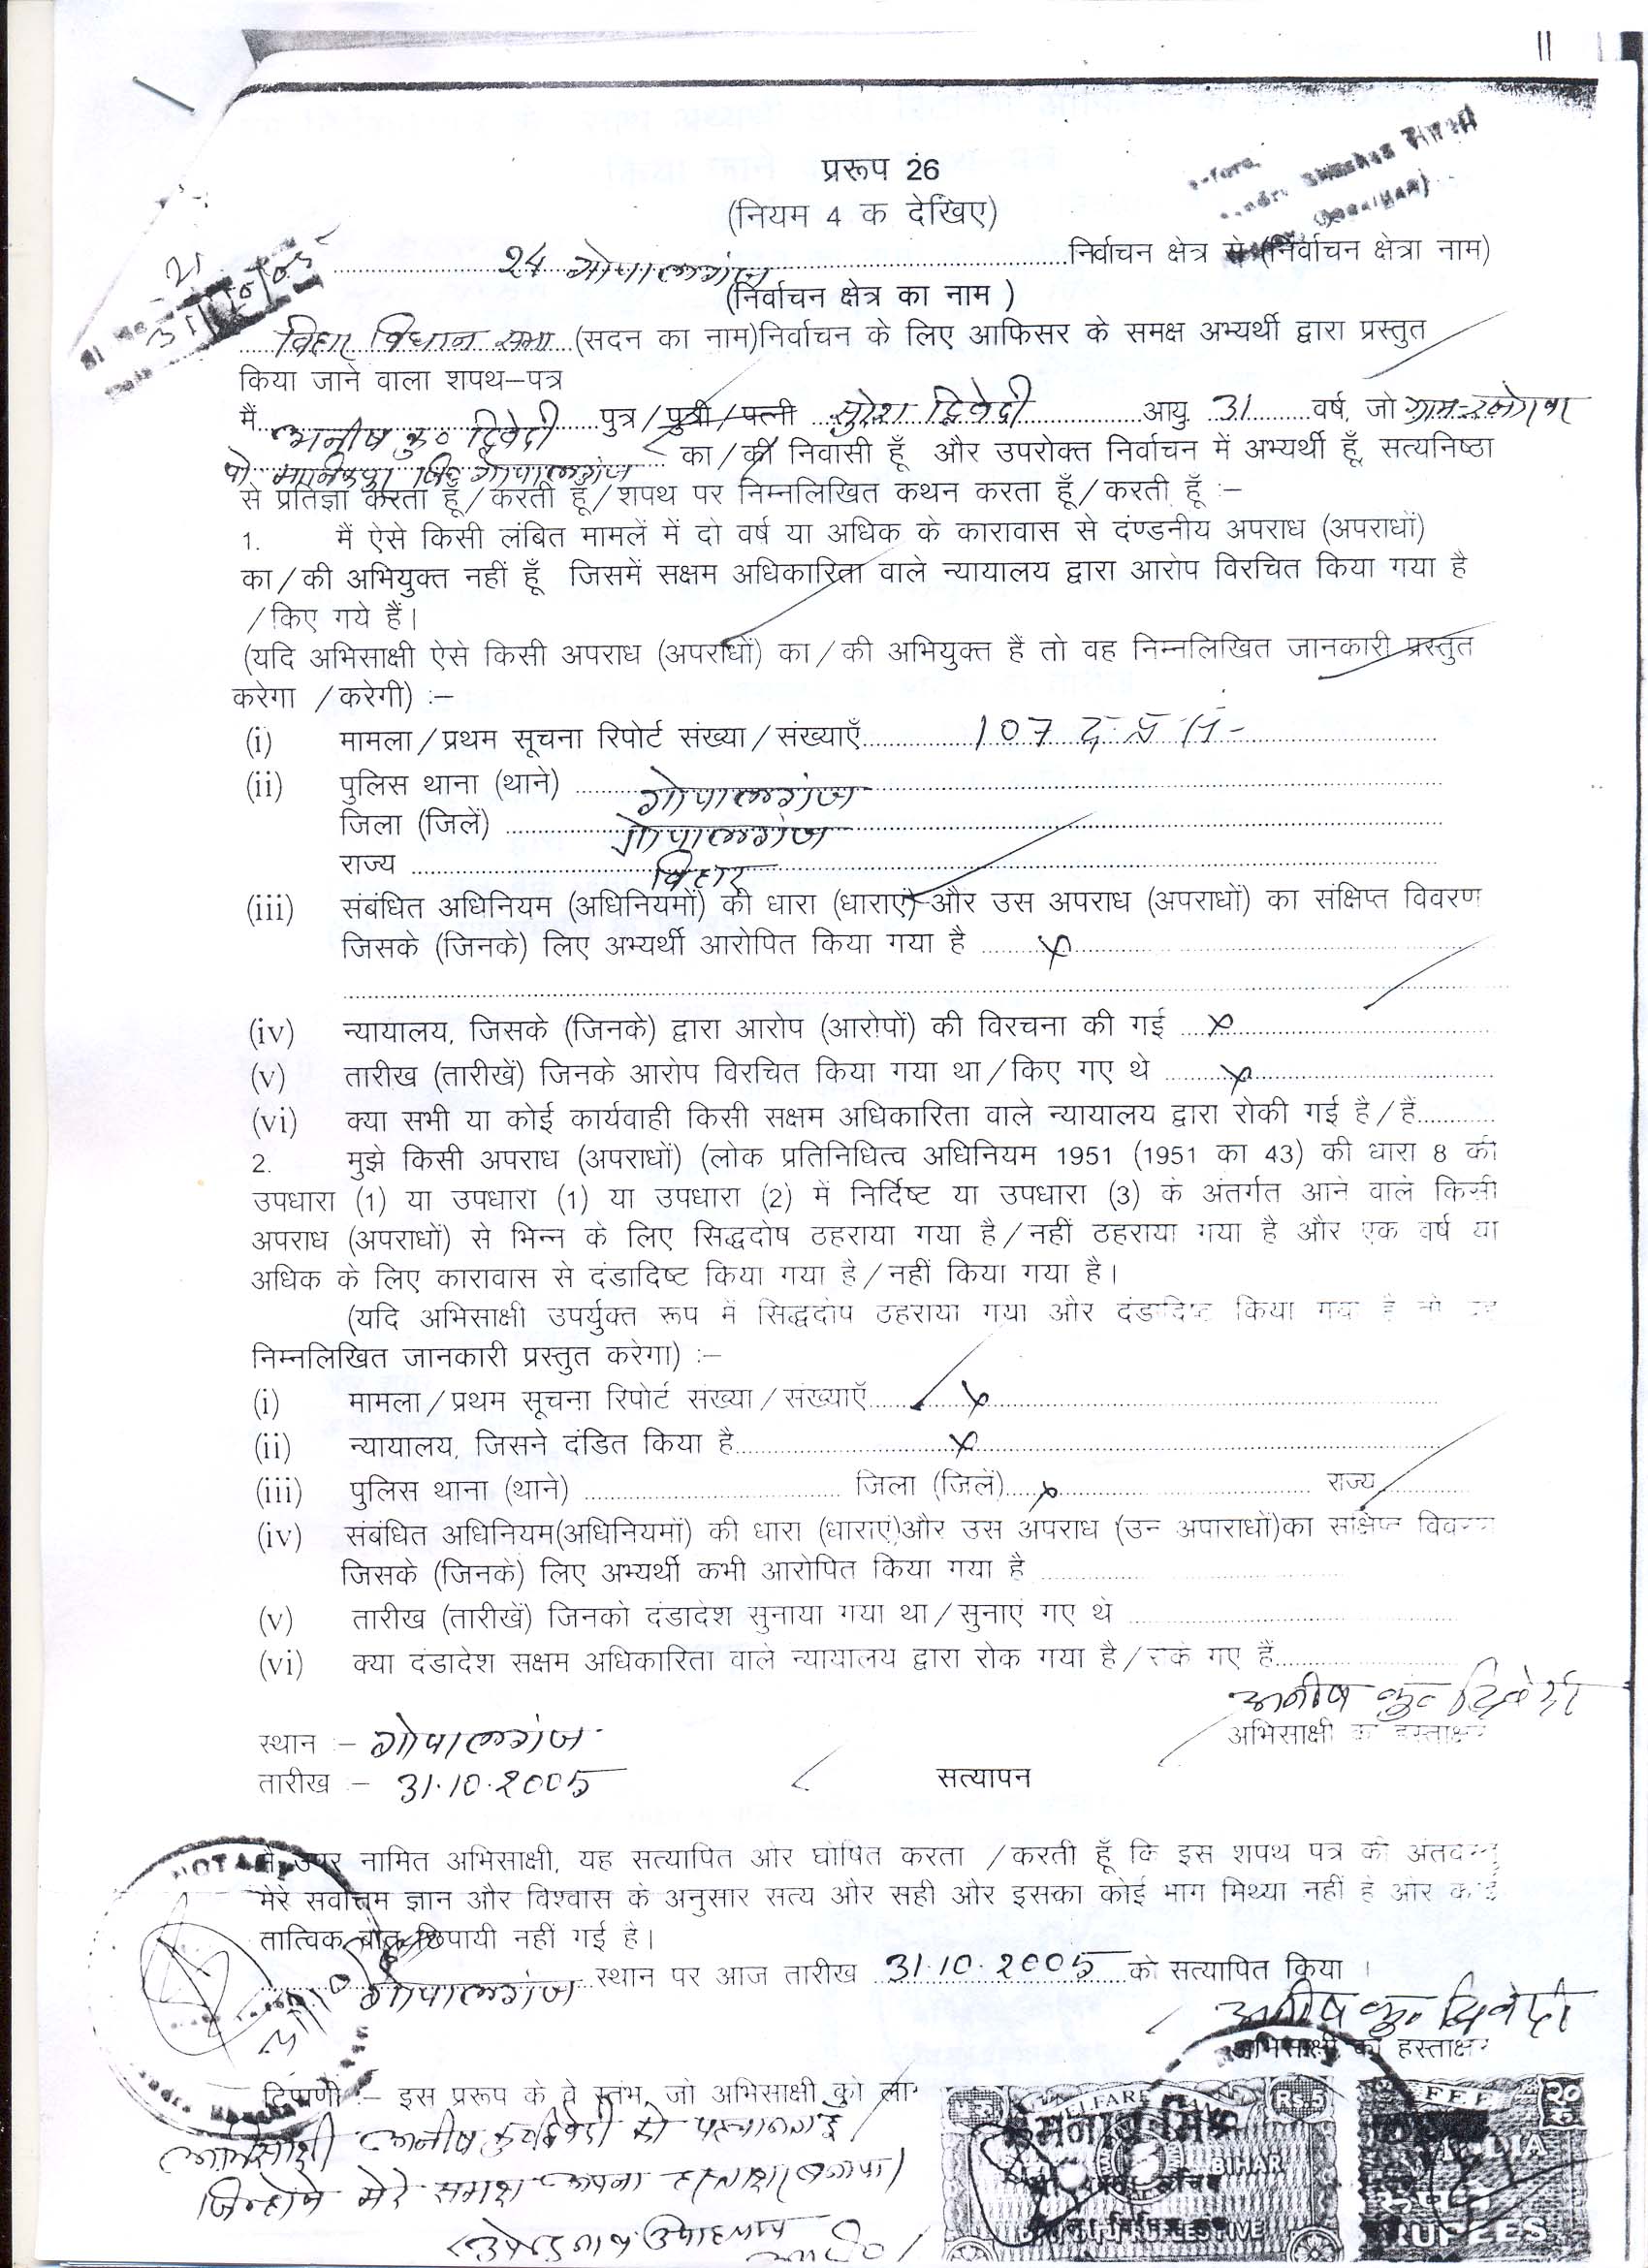 11
प्ररूप 26
(नियम 4 क देखिए)
24 गोपालगंज निर्वाचन क्षेत्र से (निर्वाचन क्षेत्रा नाम)
(निर्वाचन क्षेत्र का नाम )
विहार विधान सभा (सदन का नाम)निर्वाचन के लिए आफिसर के समक्ष अभ्यर्थी द्वारा प्रस्तुत
किया जाने वाला शपथ–पत्र
मैं अनीष कु० द्विवेदी पुत्र/पुत्री/पत्नी सुरेश द्विवेदी आयु 31 वर्ष, जो ग्राम
पो गोपालगंज का/की निवासी हूँ और उपरोक्त निर्वाचन में अभ्यर्थी हूँ, सत्यनिष्ठा
से प्रतिज्ञा करता हूँ/करती हूँ/शपथ पर निम्नलिखित कथन करता हूँ/करती हूँ :–
1. मैं ऐसे किसी लंबित मामलें में दो वर्ष या अधिक के कारावास से दंण्डनीय अपराध (अपराधों)
का/की अभियुक्त नहीं हूँ जिसमें सक्षम अधिकारिता वाले न्यायालय द्वारा आरोप विरचित किया गया है
/किए गये हैं।
(यदि अभिसाक्षी ऐसे किसी अपराध (अपराधों) का/की अभियुक्त हैं तो वह निम्नलिखित जानकारी प्रस्तुत
करेगा /करेगी) :–
(i) मामला/प्रथम सूचना रिपोर्ट संख्या/संख्याएँ 107
(ii) पुलिस थाना (थाने) गोपालगंज
जिला (जिलें) गोपालगंज
राज्य विहार
(iii) संबंधित अधिनियम (अधिनियमों) की धारा (धाराएं) और उस अपराध (अपराधों) का संक्षिप्त विवरण
जिसके (जिनके) लिए अभ्यर्थी आरोपित किया गया है x
(iv) न्यायालय, जिसके (जिनके) द्वारा आरोप (आरोपों) की विरचना की गई x
(v) तारीख (तारीखें) जिनके आरोप विरचित किया गया था/किए गए थे x
(vi) क्या सभी या कोई कार्यवाही किसी सक्षम अधिकारिता वाले न्यायालय द्वारा रोकी गई है/हैं
2. मुझे किसी अपराध (अपराधों) (लोक प्रतिनिधित्व अधिनियम 1951 (1951 का 43) की धारा 8 की
उपधारा (1) या उपधारा (1) या उपधारा (2) में निर्दिष्ट या उपधारा (3) के अंतर्गत आने वाले किसी
अपराध (अपराधों) से भिन्न के लिए सिद्धदोष ठहराया गया है/नहीं ठहराया गया है और एक वर्ष या
अधिक के लिए कारावास से दंडादिष्ट किया गया है/नहीं किया गया है।
(यदि अभिसाक्षी उपर्युक्त रूप में सिद्धदोष ठहराया गया और दंडादिष्ट किया गया है तो वह
निम्नलिखित जानकारी प्रस्तुत करेगा) :–
(i) मामला/प्रथम सूचना रिपोर्ट संख्या/संख्याएँ x
(ii) न्यायालय, जिसने दंडित किया है x
(iii) पुलिस थाना (थाने) जिला (जिलें) x राज्य
(iv) संबंधित अधिनियम(अधिनियमों) की धारा (धाराएं)और उस अपराध (उन अपाराधों)का संक्षिप्त विवरण
जिसके (जिनके) लिए अभ्यर्थी कभी आरोपित किया गया है
(v) तारीख (तारीखें) जिनको दंडादेश सुनाया गया था/सुनाएं गए थे
(vi) क्या दंडादेश सक्षम अधिकारिता वाले न्यायालय द्वारा रोक गया है/रोके गए हैं
अनीष कु० द्विवेदी
अभिसाक्षी का हस्ताक्षर
स्थान :– गोपालगंज
तारीख :– 31.10.2005
सत्यापन
मैं उपर नामित अभिसाक्षी, यह सत्यापित और घोषित करता /करती हूँ कि इस शपथ पत्र की अंतर्वस्तु
मेरे सर्वोत्तम ज्ञान और विश्वास के अनुसार सत्य और सही और इसका कोई भाग मिथ्या नहीं है और कोई
तात्विक बात छिपायी नहीं गई है।
गोपालगंज स्थान पर आज तारीख 31.10.2005 को सत्यापित किया ।
अनीष कु० द्विवेदी
अभिसाक्षी का हस्ताक्षर
NOTARY
टिप्पणी :– इस प्ररूप के वे स्तंभ, जो अभिसाक्षी को
अभिसाक्षी अनीष कु० द्विवेदी को
जिन्होंने मेरे समक्ष अपना हस्ताक्षर बनाया।
WELFARE
RS.5
BIHAR
RUPEES FIVE
FEE
२०
INDIA
RUPEES